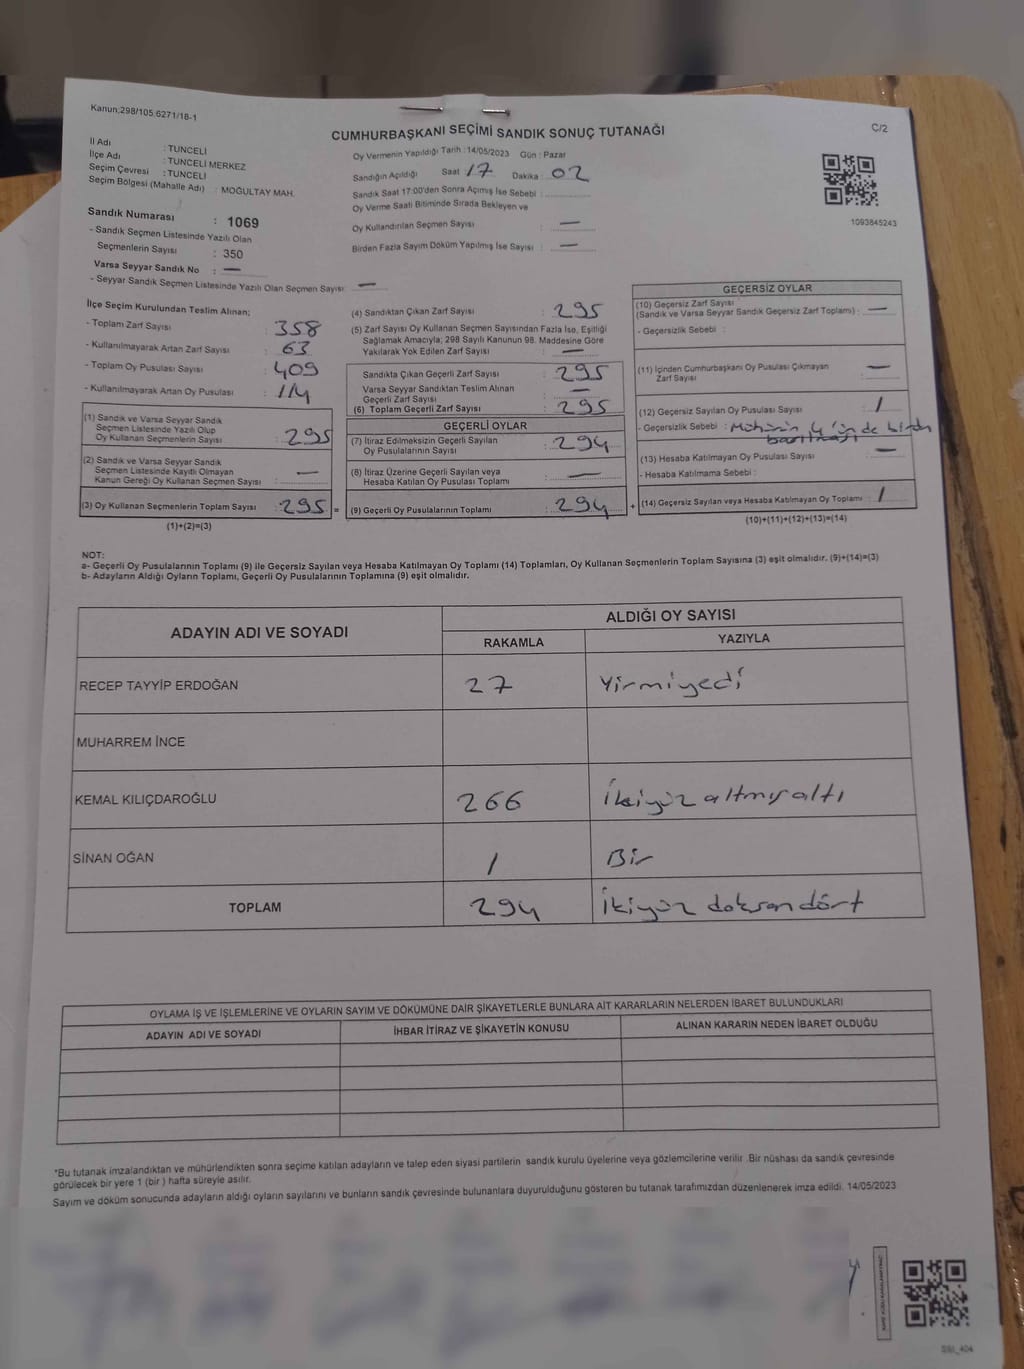 Kanun;298/105;6271/18-1
C/2
CUMHURBAŞKANI SEÇİMİ SANDIK SONUÇ TUTANAĞI
İl Adı : TUNCELİ
İlçe Adı : TUNCELİ MERKEZ
Seçim Çevresi : TUNCELİ
Seçim Bölgesi (Mahalle Adı) : MOĞULTAY MAH.
Oy Vermenin Yapıldığı Tarih : 14/05/2023 Gün : Pazar
Sandığın Açıldığı Saat 17 Dakika : 02
Sandık Saat 17:00'den Sonra Açımış İse Sebebi :
Oy Verme Saati Bitiminde Sırada Bekleyen ve
Oy Kullandırılan Seçmen Sayısı : —
Birden Fazla Sayım Döküm Yapılmış İse Sayısı : —
1093845243
Sandık Numarası : 1069
- Sandık Seçmen Listesinde Yazılı Olan
Seçmenlerin Sayısı : 350
Varsa Seyyar Sandık No : —
- Seyyar Sandık Seçmen Listesinde Yazılı Olan Seçmen Sayısı: —
İlçe Seçim Kurulundan Teslim Alınan;
- Toplam Zarf Sayısı : 358
- Kullanılmayarak Artan Zarf Sayısı : 63
- Toplam Oy Pusulası Sayısı : 409
- Kullanılmayarak Artan Oy Pusulası : 114
(1) Sandık ve Varsa Seyyar Sandık
Seçmen Listesinde Yazılı Olup
Oy Kullanan Seçmenlerin Sayısı : 295
(2) Sandık ve Varsa Seyyar Sandık
Seçmen Listesinde Kayıtlı Olmayan
Kanun Gereği Oy Kullanan Seçmen Sayısı : —
(3) Oy Kullanan Seçmenlerin Toplam Sayısı : 295 =
(1)+(2)=(3)
(4) Sandıktan Çıkan Zarf Sayısı : 295
(5) Zarf Sayısı Oy Kullanan Seçmen Sayısından Fazla İse, Eşitliği
Sağlamak Amacıyla; 298 Sayılı Kanunun 98. Maddesine Göre
Yakılarak Yok Edilen Zarf Sayısı : —
Sandıkta Çıkan Geçerli Zarf Sayısı : 295
Varsa Seyyar Sandıktan Teslim Alınan
Geçerli Zarf Sayısı : —
(6) Toplam Geçerli Zarf Sayısı : 295
GEÇERLİ OYLAR
(7) İtiraz Edilmeksizin Geçerli Sayılan
Oy Pusulalarının Sayısı : 294
(8) İtiraz Üzerine Geçerli Sayılan veya
Hesaba Katılan Oy Pusulası Toplamı : —
(9) Geçerli Oy Pusulalarının Toplamı : 294 +
GEÇERSİZ OYLAR
(10) Geçersiz Zarf Sayısı
(Sandık ve Varsa Seyyar Sandık Geçersiz Zarf Toplamı) : —
- Geçersizlik Sebebi :
(11) İçinden Cumhurbaşkanı Oy Pusulası Çıkmayan
Zarf Sayısı : —
(12) Geçersiz Sayılan Oy Pusulası Sayısı : 1
- Geçersizlik Sebebi : Mühürün 4'ün de birden
basılması
(13) Hesaba Katılmayan Oy Pusulası Sayısı : —
- Hesaba Katılmama Sebebi :
(14) Geçersiz Sayılan veya Hesaba Katılmayan Oy Toplamı : 1
(10)+(11)+(12)+(13)=(14)
NOT:
a- Geçerli Oy Pusulalarının Toplamı (9) ile Geçersiz Sayılan veya Hesaba Katılmayan Oy Toplamı (14) Toplamları, Oy Kullanan Seçmenlerin Toplam Sayısına (3) eşit olmalıdır. (9)+(14)=(3)
b- Adayların Aldığı Oyların Toplamı, Geçerli Oy Pusulalarının Toplamına (9) eşit olmalıdır.
ADAYIN ADI VE SOYADI
ALDIĞI OY SAYISI
RAKAMLA YAZIYLA
RECEP TAYYİP ERDOĞAN 27 Yirmiyedi
MUHARREM İNCE
KEMAL KILIÇDAROĞLU 266 İkiyüz altmış altı
SİNAN OĞAN 1 Bir
TOPLAM 294 İkiyüz doksan dört
OYLAMA İŞ VE İŞLEMLERİNE VE OYLARIN SAYIM VE DÖKÜMÜNE DAİR ŞİKAYETLERLE BUNLARA AİT KARARLARIN NELERDEN İBARET BULUNDUKLARI
ADAYIN ADI VE SOYADI İHBAR İTİRAZ VE ŞİKAYETİN KONUSU ALINAN KARARIN NEDEN İBARET OLDUĞU
*Bu tutanak imzalandıktan ve mühürlendikten sonra seçime katılan adayların ve talep eden siyasi partilerin sandık kurulu üyelerine veya gözlemcilerine verilir .Bir nüshası da sandık çevresinde
görülecek bir yere 1 (bir ) hafta süreyle asılır.
Sayım ve döküm sonucunda adayların aldığı oyların sayılarını ve bunların sandık çevresinde bulunanlara duyurulduğunu gösteren bu tutanak tarafımızdan düzenlenerek imza edildi. 14/05/2023
SSI_404